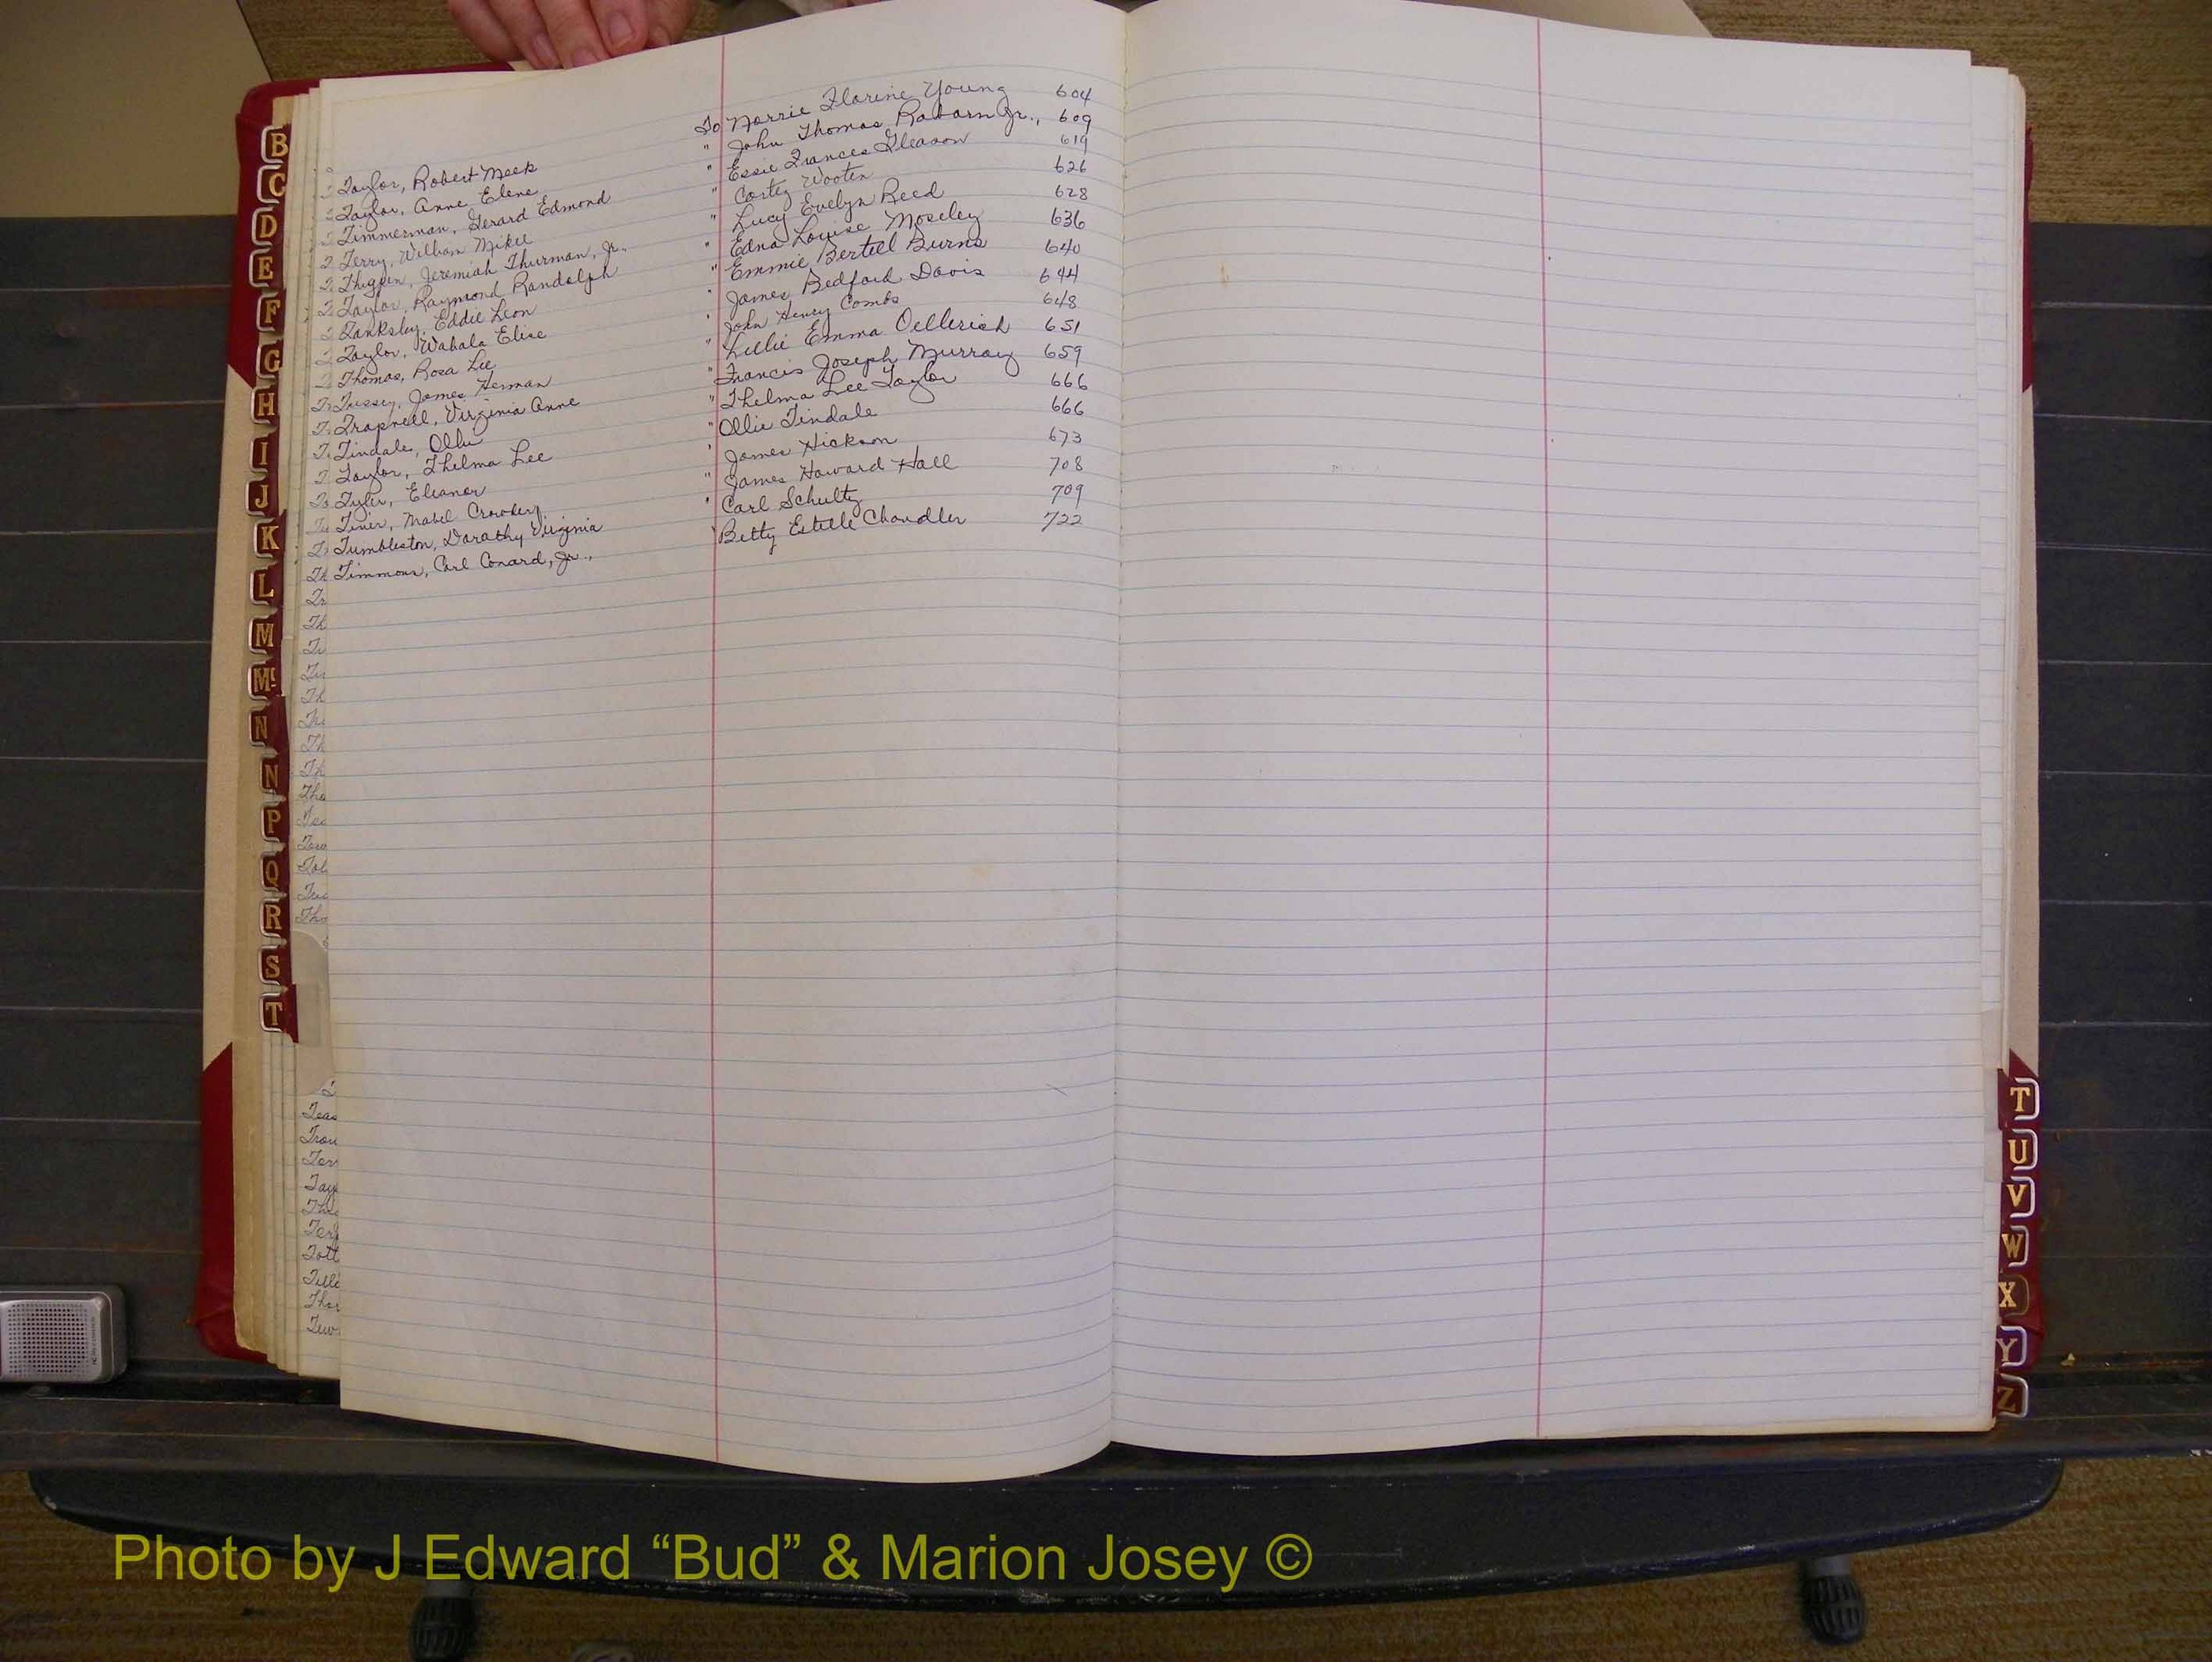 Taylor, Robert Meek To Norrie Florine Young 604
Taylor, Anne Elene " John Thomas Raborn Jr., 609
Timmerman, Gerard Edmond " Essie Frances Gleason 619
Terry, William Mikel " Cortez Wooten 626
Thigpen, Jeremiah Thurman, Jr. " Lucy Evelyn Reed 628
Taylor, Raymond Randolph " Edna Louise Moseley 636
Tanksley, Eddie Leon " Emmie Bertell Burns 640
Taylor, Wahala Elise " James Bedford Davis 644
Thomas, Rosa Lee " John Henry Combs 648
Tussey, James Herman " Lillie Emma Oellerich 651
Trapnell, Virginia Anne " Francis Joseph Murray 659
Tindale, Ollie " Thelma Lee Taylor 666
Taylor, Thelma Lee " Ollie Tindale 666
Tyler, Eleanor " James Hickson 673
Tiner, Mabel Crowder " James Howard Hall 708
Tumbleston, Dorothy Virginia " Carl Schultz 709
Timmons, Carl Conard, Jr., " Betty Estelle Chandler 722
B
C
D
E
F
G
H
I
J
K
L
M
Mc
N
N
P
Q
R
S
T
T
U
V
W
X
Y
Z
Photo by J Edward “Bud” & Marion Josey ©